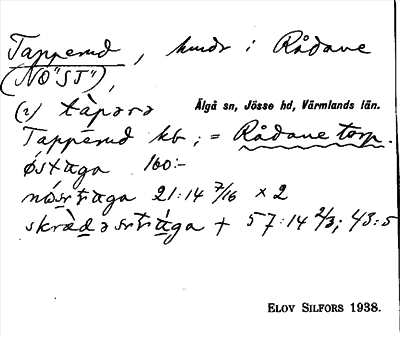 Tapperud, hmdr i Rådane
(NO"ST"),
(r) tàpərə
Älgå sn, Jösse hd, Värmlands län.
Tapperud kb; = Rådane torp.
östaga 160:-
nórstaga 21:14 7/16 × 2
skràdəsrtrága + 57:14 2/3; 43:5
ELOV SILFORS 1938.